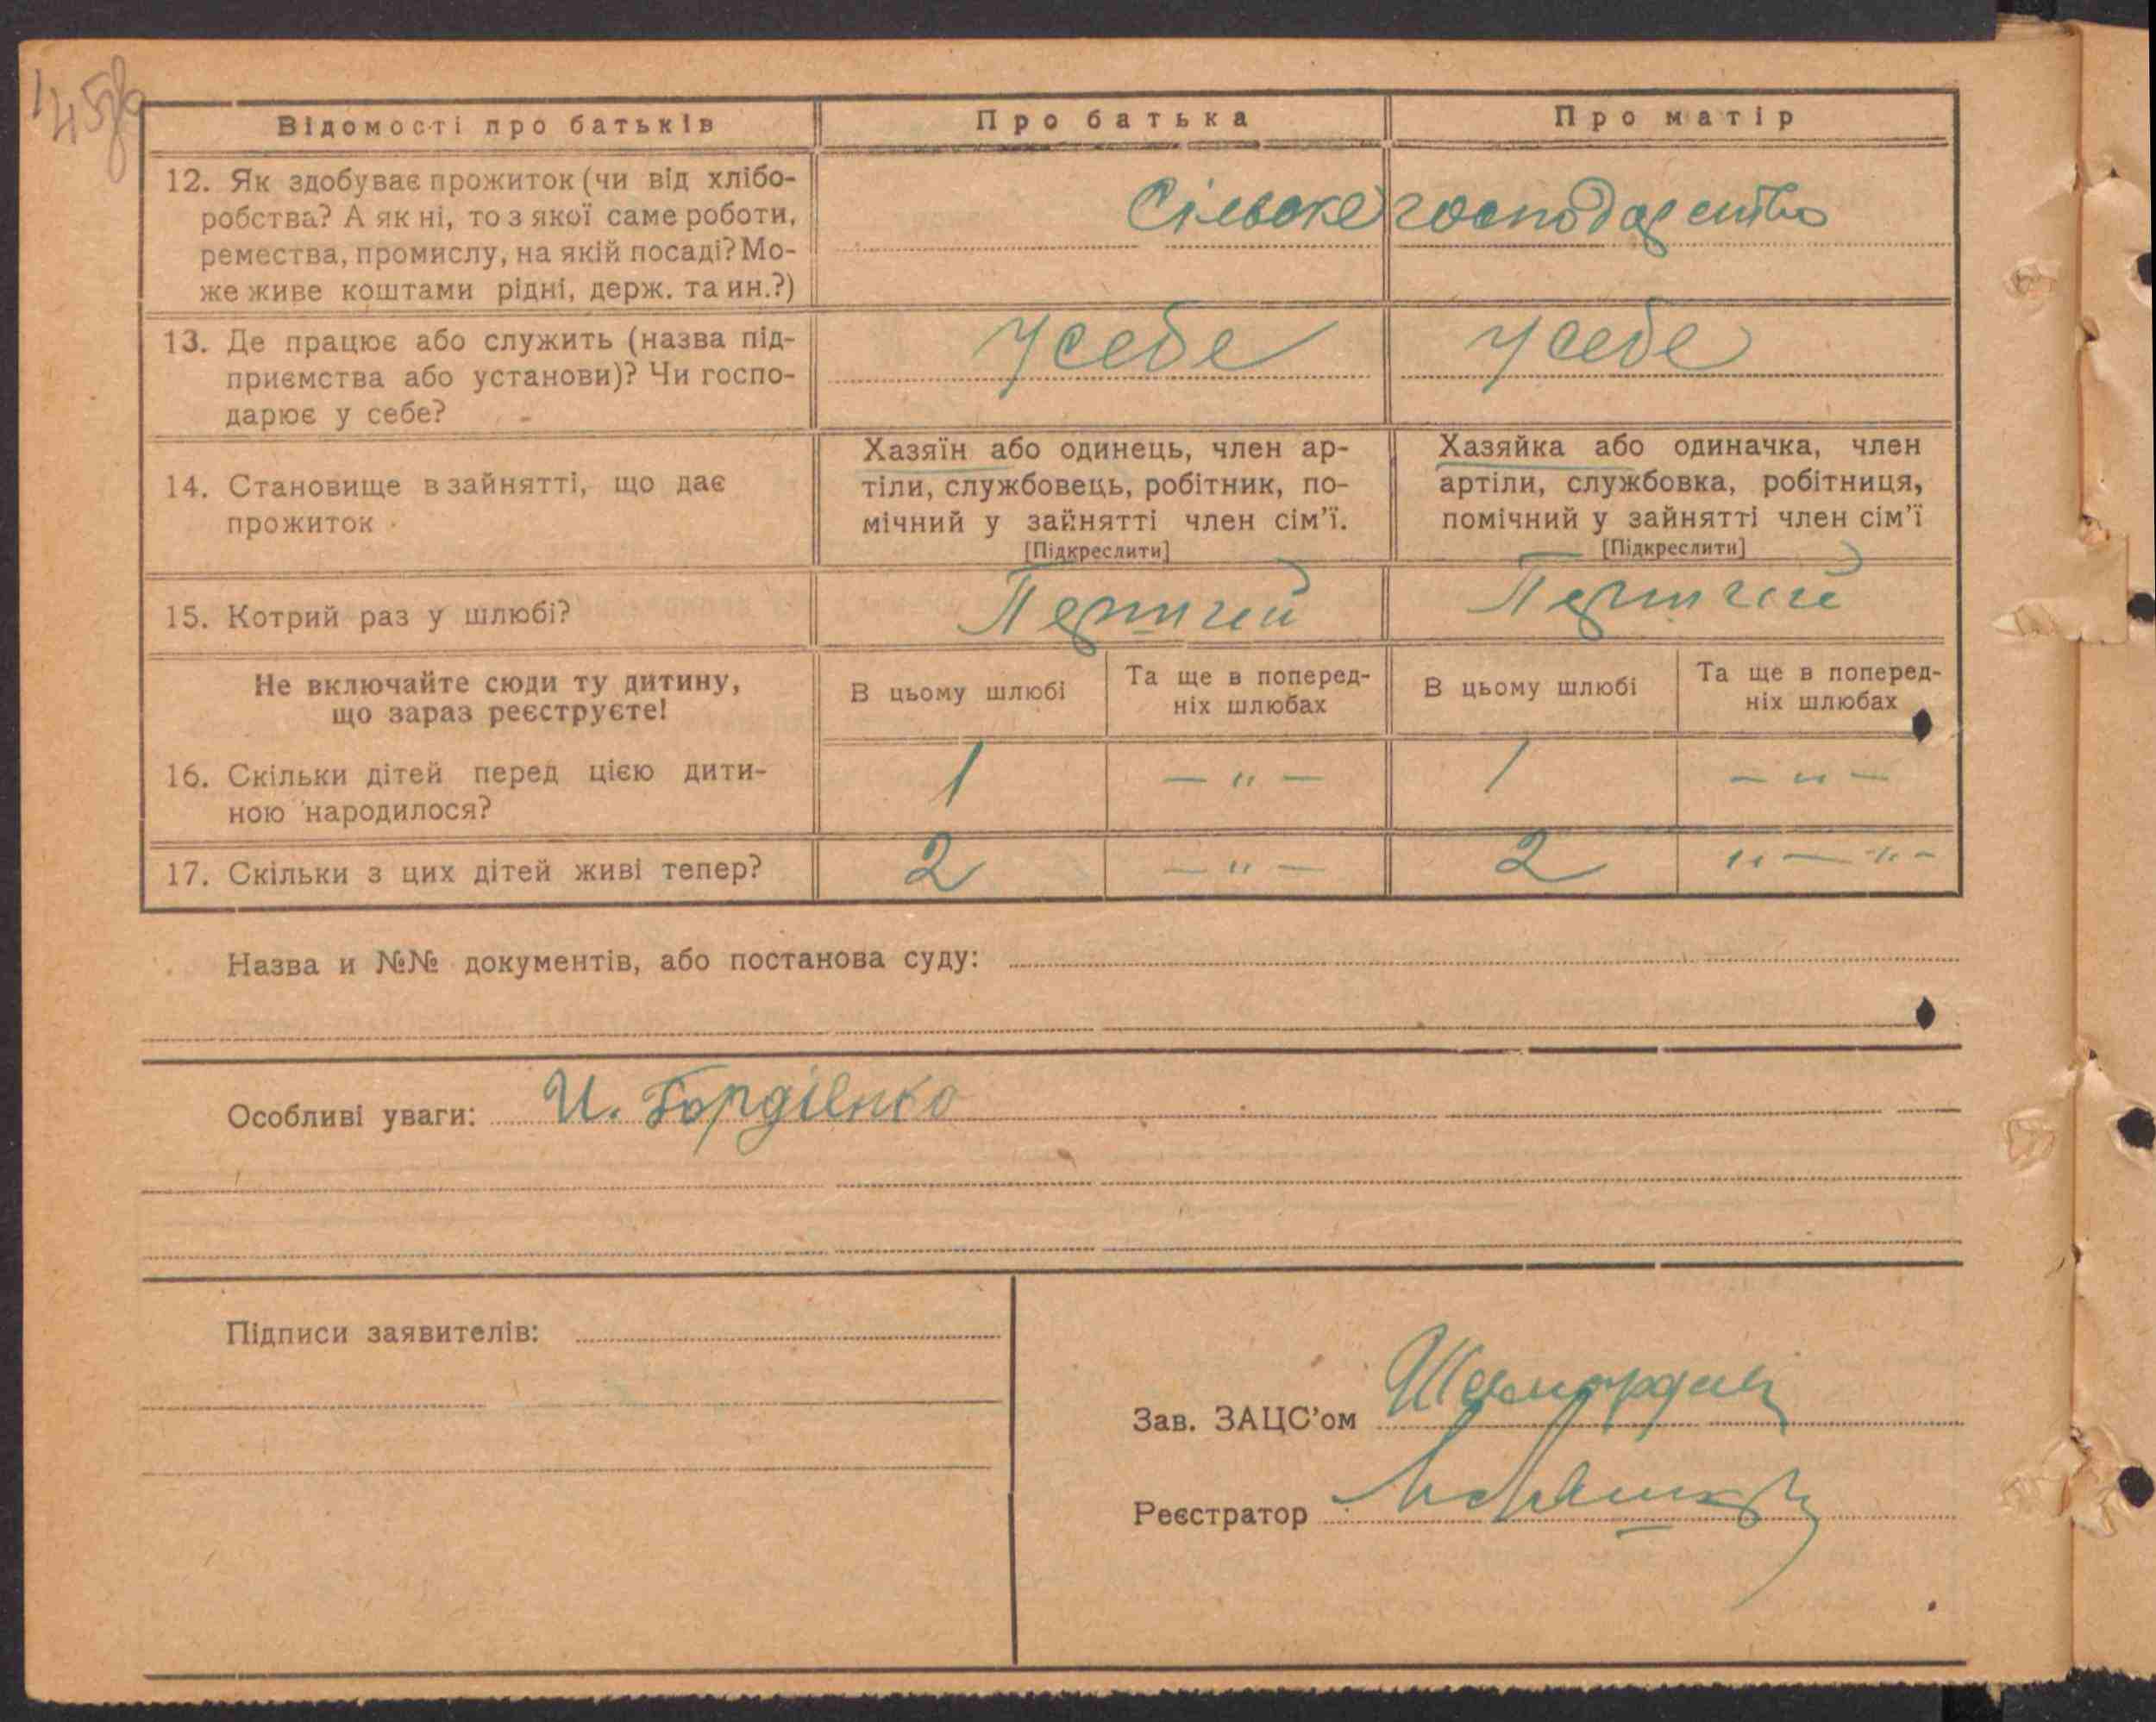 Відомості про батьків
Про батька
Про матір
12. Як здобуває прожиток (чи від хлібо-
робства? А як ні, то з якої саме роботи,
ремества, промислу, на якій посаді? Мо-
же живе коштами рідні, держ. та ин.?)
Сільське господарство
13. Де працює або служить (назва під-
приємства або установи)? Чи госпо-
дарює у себе?
У себе
У себе
14. Становище в зайнятті, що дає
прожиток
Хазяїн або одинець, член ар-
тіли, службовець, робітник, по-
мічний у зайнятті член сім'ї.
[Підкреслити]
Хазяйка або одиначка, член
артіли, службовка, робітниця,
помічний у зайнятті член сім'ї
[Підкреслити]
15. Котрий раз у шлюбі?
Не включайте сюди ту дитину,
що зараз реєструєте!
В цьому шлюбі
Та ще в поперед-
ніх шлюбах
В цьому шлюбі
Та ще в поперед-
ніх шлюбах
16. Скільки дітей перед цією дити-
ною народилося?
1
— " —
1
— " —
17. Скільки з цих дітей живі тепер?
2
— " —
2
" — " —
Назва и №№ документів, або постанова суду:
Особливі уваги: И. Гордіенко
Підписи заявителів:
Зав. ЗАЦС'ом
Реєстратор